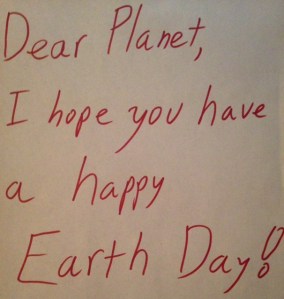 Dear Planet,
I hope you have
a happy
Earth Day!